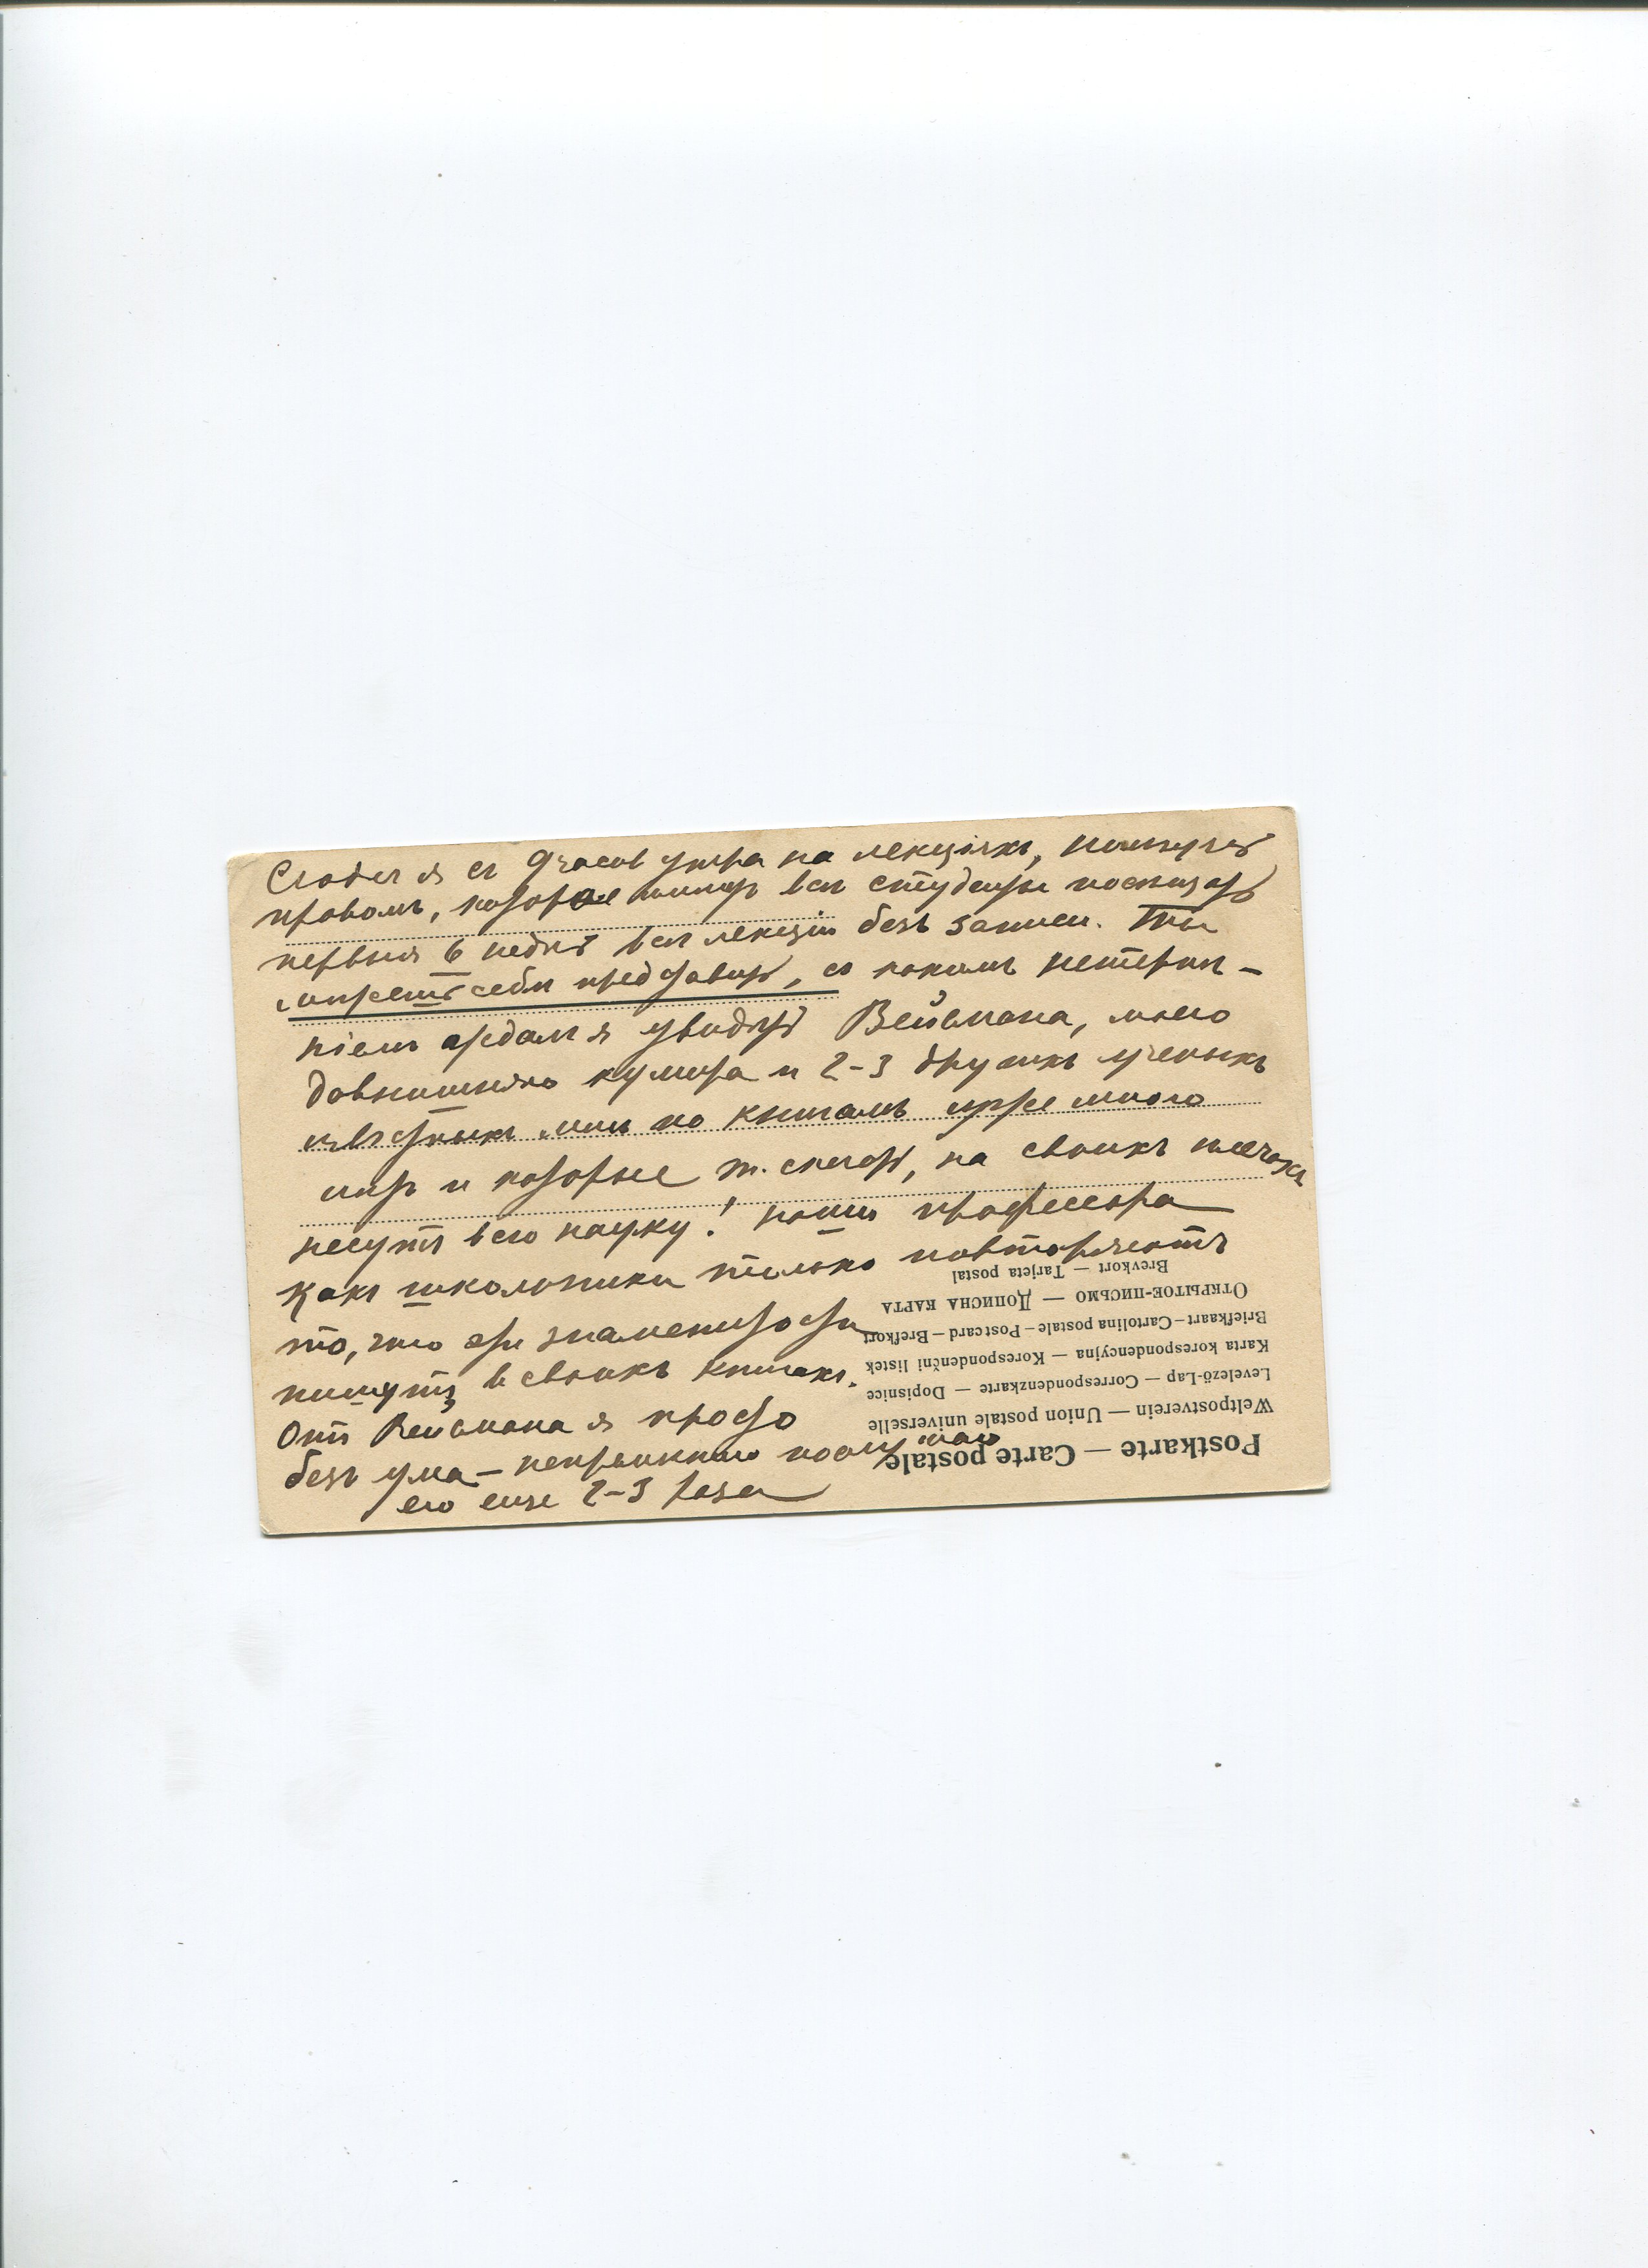 Сегодня я съ 9 часов утра на лекціяхъ, пользуясь
правомъ, которое имѣютъ всѣ студенты посѣщать
первыя 6 недѣль всѣ лекціи безъ записи. Ты
можешь себѣ представить, съ какимъ нетерпѣ-
ніемъ ждала я увидѣть Вейсмана, моего
давнишняго кумира и 2-3 другихъ ученыхъ
извѣстныхъ мнѣ по книгамъ уже много
лѣтъ и которые т. сказать, на своихъ плечахъ
несутъ всю науку! наши профессора
какъ школьники только повторяютъ
то, что эти знаменитости
пишутъ въ своихъ книгахъ.
Отъ Вейсмана я просто
безъ ума – непремѣнно послушаю
его еще 2-3 раза
Postkarte — Carte postale
Weltpostverein — Union postale universelle
Levelező-Lap — Correspondenzkarte — Dopisnice
Karta korespondencyjna — Korespondenčni listek
Briefkaart – Cartolina postale – Postcard – Brefkort
Открытое-письмо — Дописна карта
Brevkort — Tarjeta postal